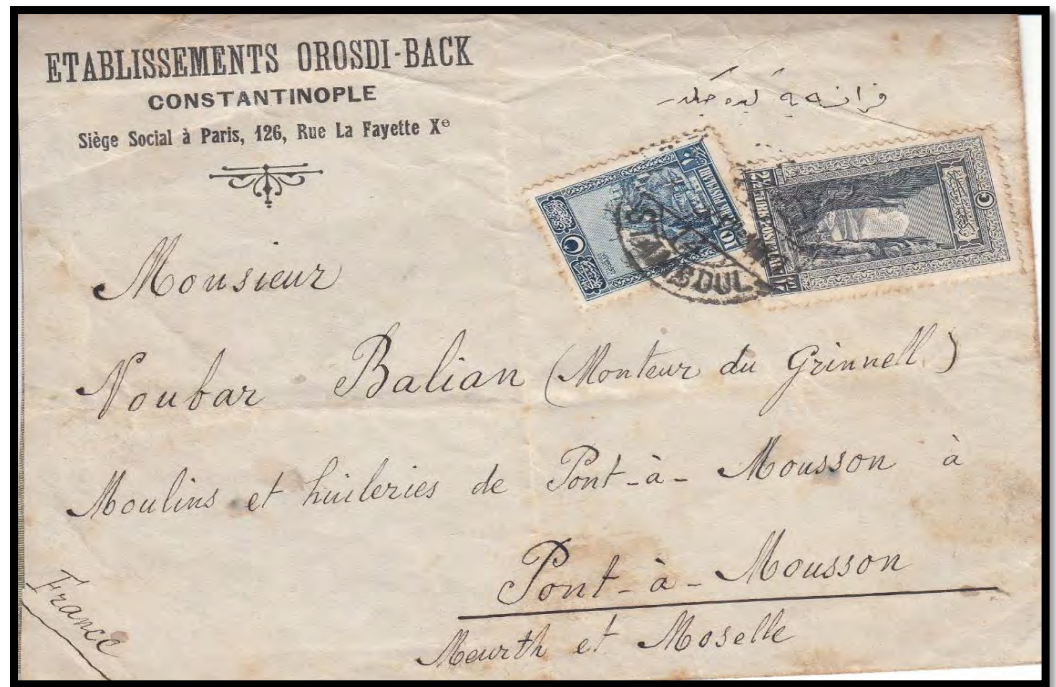 ETABLISSEMENTS OROSDI-BACK
CONSTANTINOPLE
Siège Social à Paris, 126, Rue La Fayette Xe
فرانسه يه كيده جكدر
10
2½
STAMBOUL
Monsieur
Noubar Balian (Monteur du Grinnell)
Moulins et huileries de Pont-à-Mousson à
Pont-à-Mousson
Meurth et Moselle
France